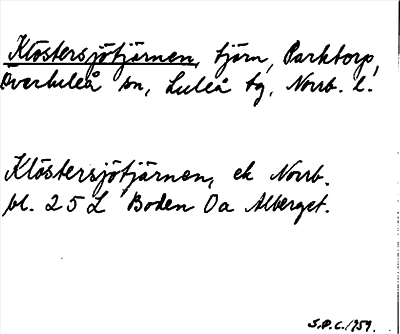 Klöstersjötjärnen, tjärn, Parktorp,
Överluleå sn, Luleå tg, Norrb. l.
Klöstersjötjärnen, ek Norrb.
bl. 25 L Boden 0a Alberget.
S.Ö.C. 1959.